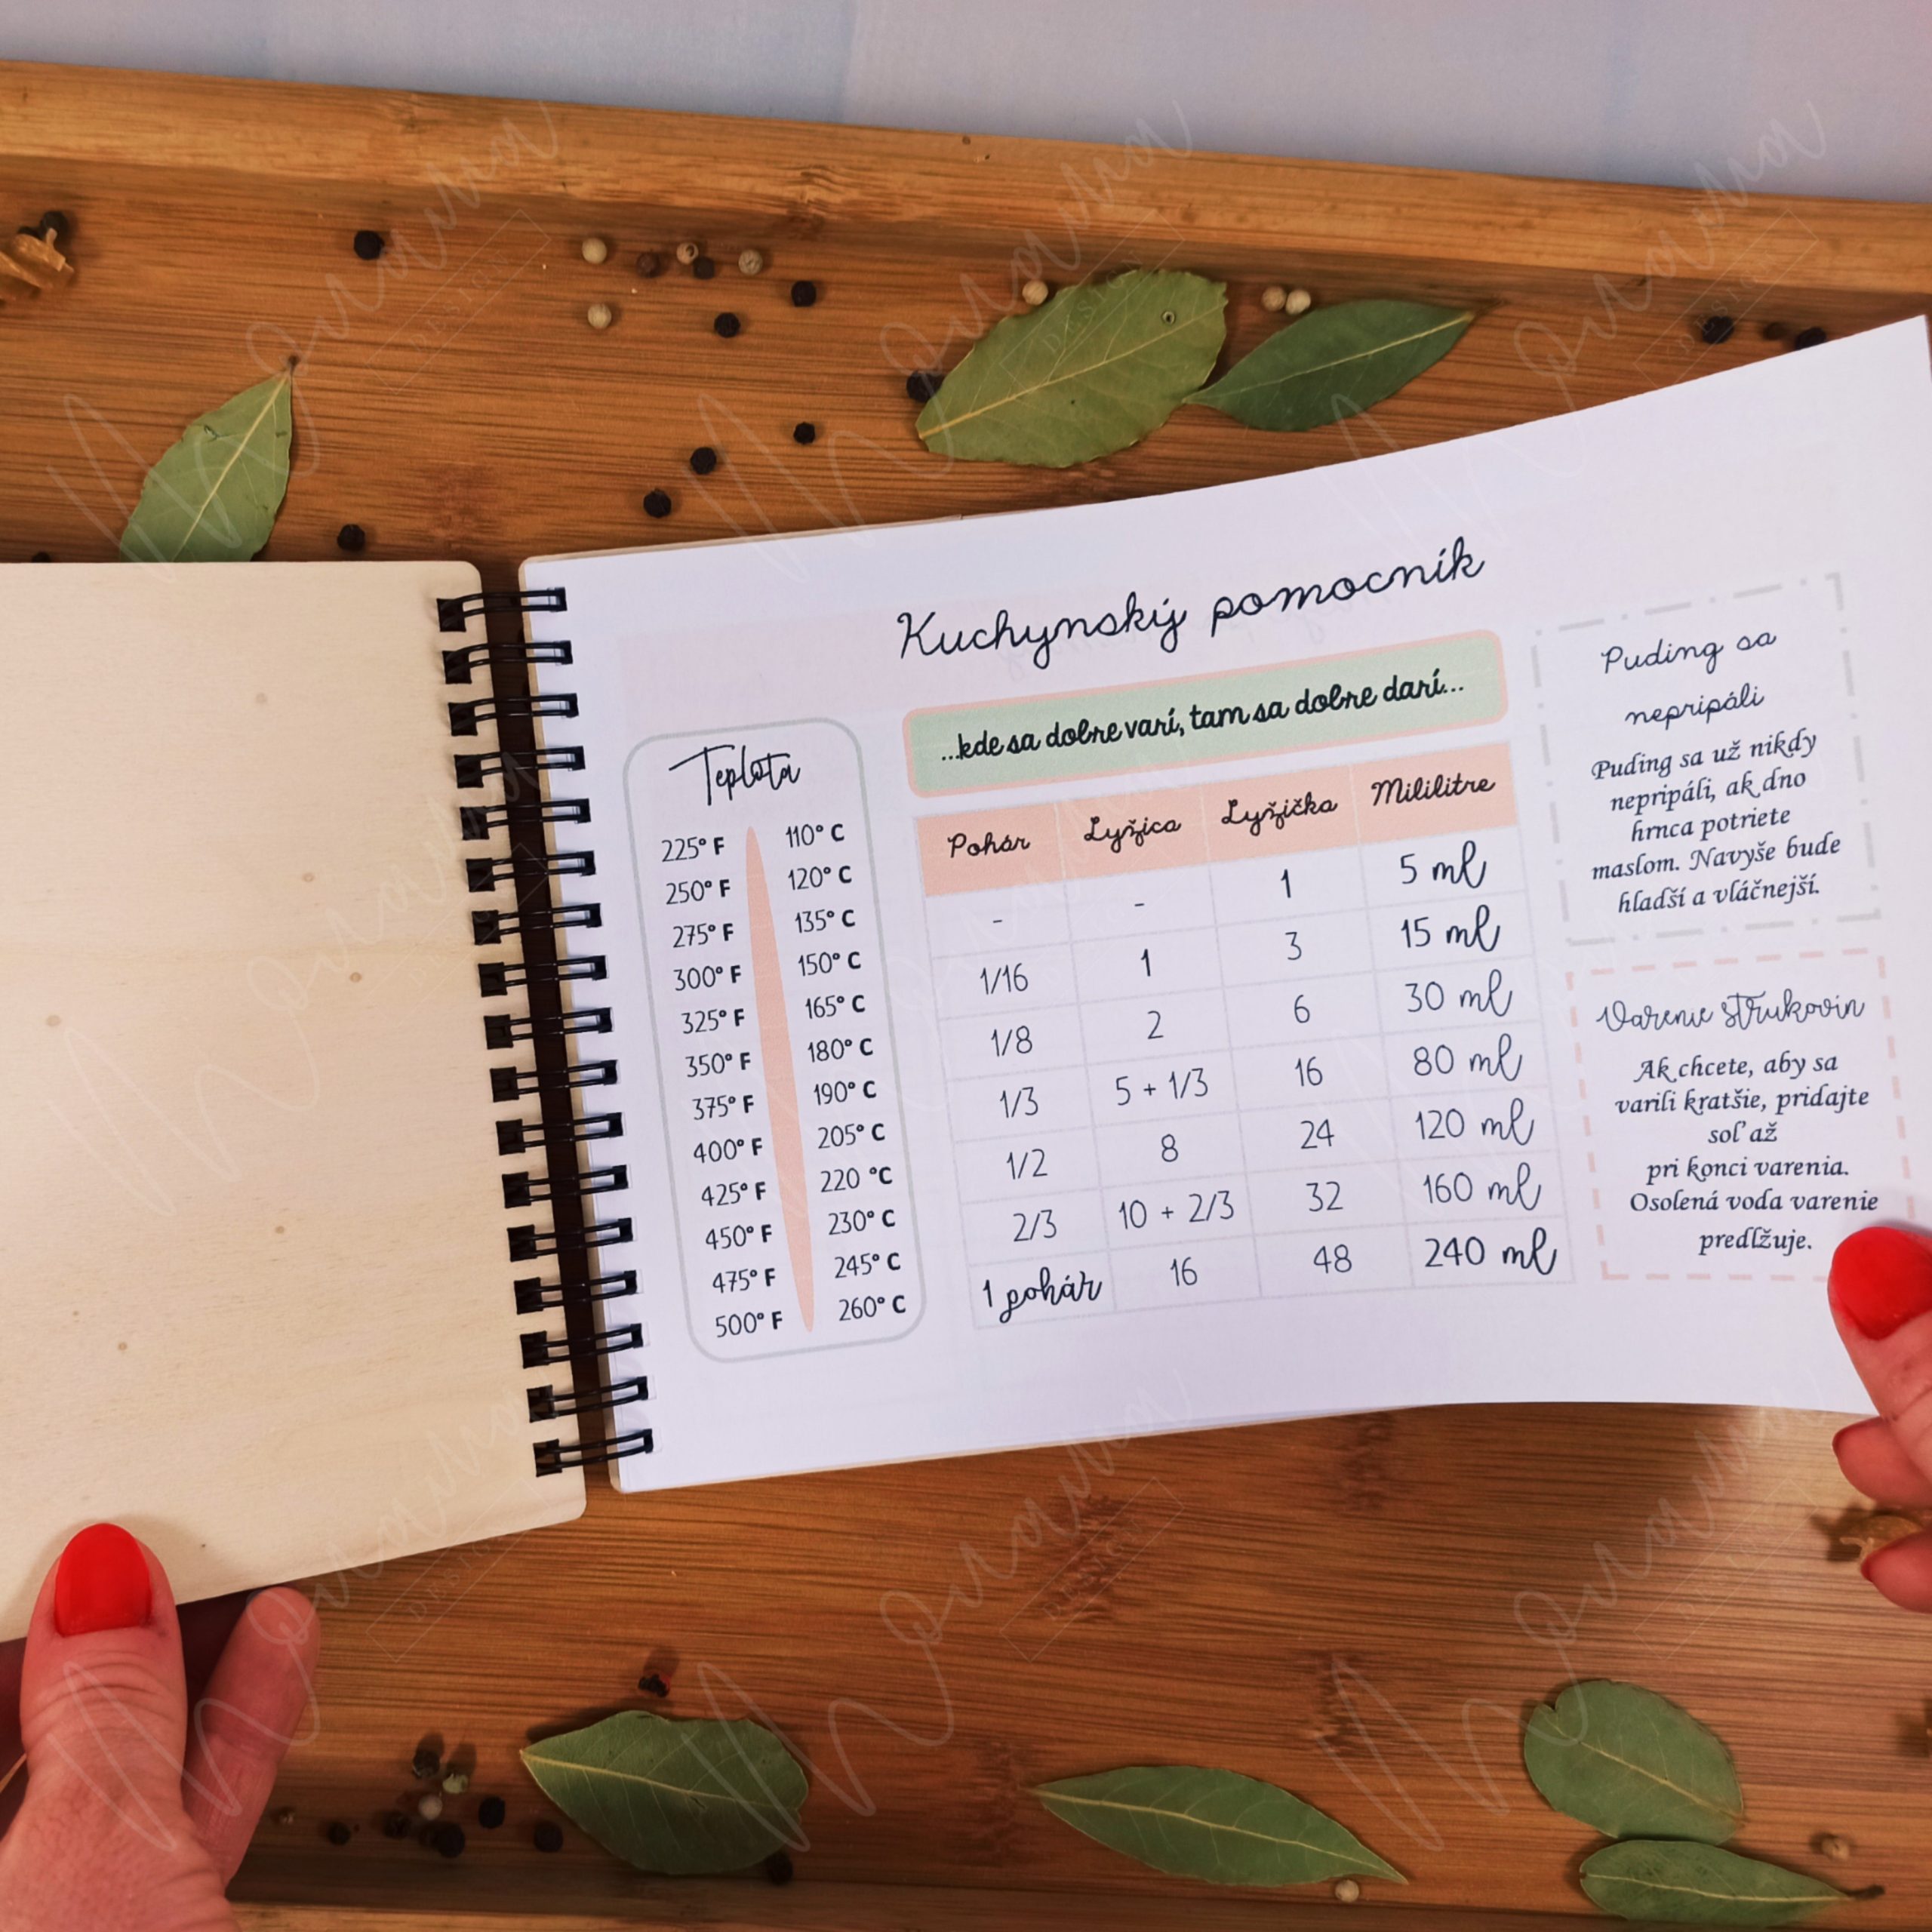 Kuchynský pomocník
...kde sa dobre varí, tam sa dobre darí...
Teplota
225° F 110° C
250° F 120° C
275° F 135° C
300° F 150° C
325° F 165° C
350° F 180° C
375° F 190° C
400° F 205° C
425° F 220 °C
450° F 230° C
475° F 245° C
500° F 260° C
Pohár Lyžica Lyžička Mililitre
- - 1 5 ml
1/16 1 3 15 ml
1/8 2 6 30 ml
1/3 5 + 1/3 16 80 ml
1/2 8 24 120 ml
2/3 10 + 2/3 32 160 ml
1 pohár 16 48 240 ml
Puding sa
nepripáli
Puding sa už nikdy
nepripáli, ak dno
hrnca potriete
maslom. Navyše bude
hladší a vláčnejší.
Varenie strukovín
Ak chcete, aby sa
varili kratšie, pridajte
soľ až
pri konci varenia.
Osolená voda varenie
predlžuje.
DESIGN